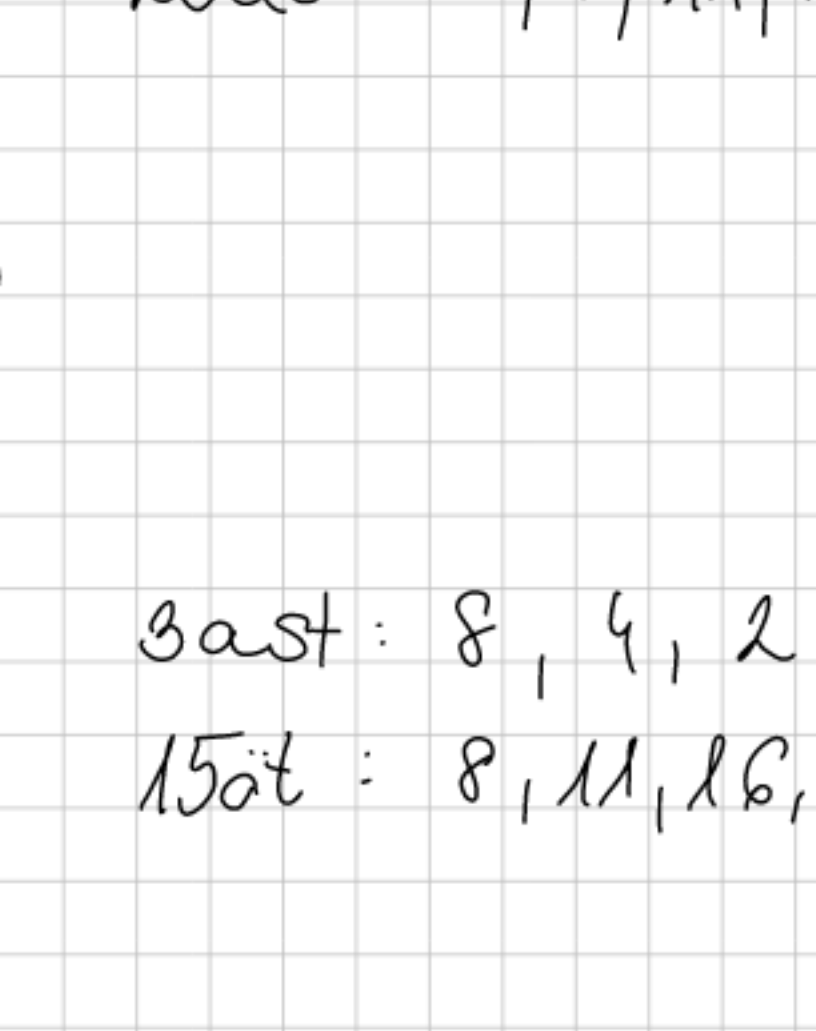 3ast: 8, 4, 2
15ät: 8, 11, 16,